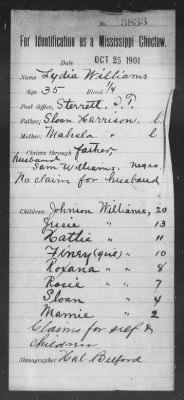 No. 3833
For Identification as a Mississippi Choctaw.
Date OCT 25 1901
Name Lydia Williams
Age 35 Blood 1/4
Post Office, Sterrett, I.T.
Father, Sloan Harrison, l
Mother, Mahala " l
Claims through father,
husband
Sam Williams, negro,
No claim for husband
Children: Johnson Williams, 20
" " 13
Hattie " 11
Finey (girl) " 10
Roxana " 8
Rosie " 7
Sloan " 4
Mamie " 2
Claims for self &
children
Stenographer Hal Belford